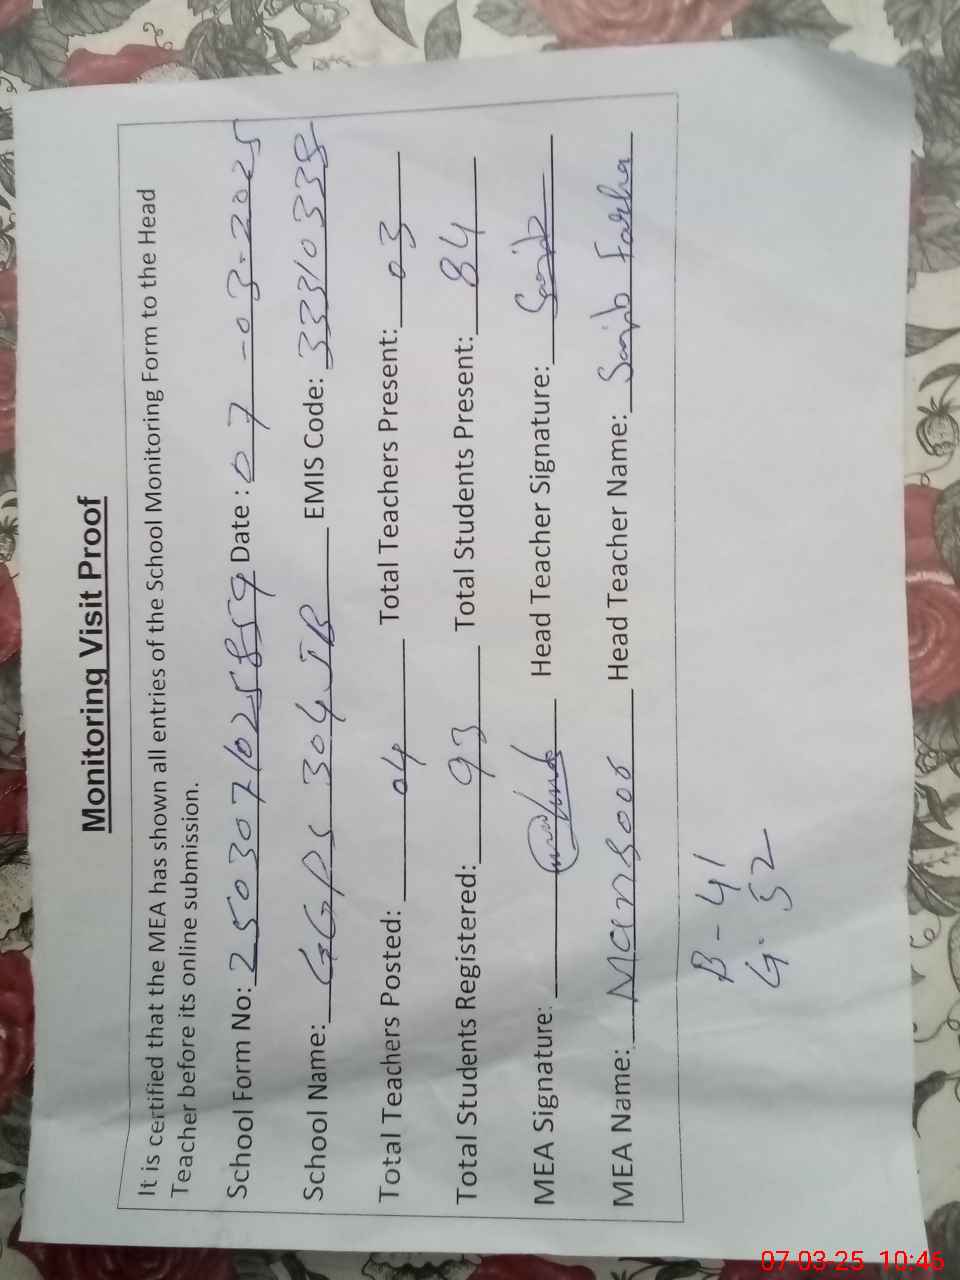 Monitoring Visit Proof
It is certified that the MEA has shown all entries of the School Monitoring Form to the Head
Teacher before its online submission.
School Form No: 2503071025859 Date : 07-03-2025
School Name: GGPS 304 JB EMIS Code: 33310338
Total Teachers Posted: 04 Total Teachers Present: 03
Total Students Registered: 93 Total Students Present: 84
MEA Signature: Head Teacher Signature:
MEA Name: Mansoor Head Teacher Name: Farha
B - 41
G. 52
07-03-25 10:46